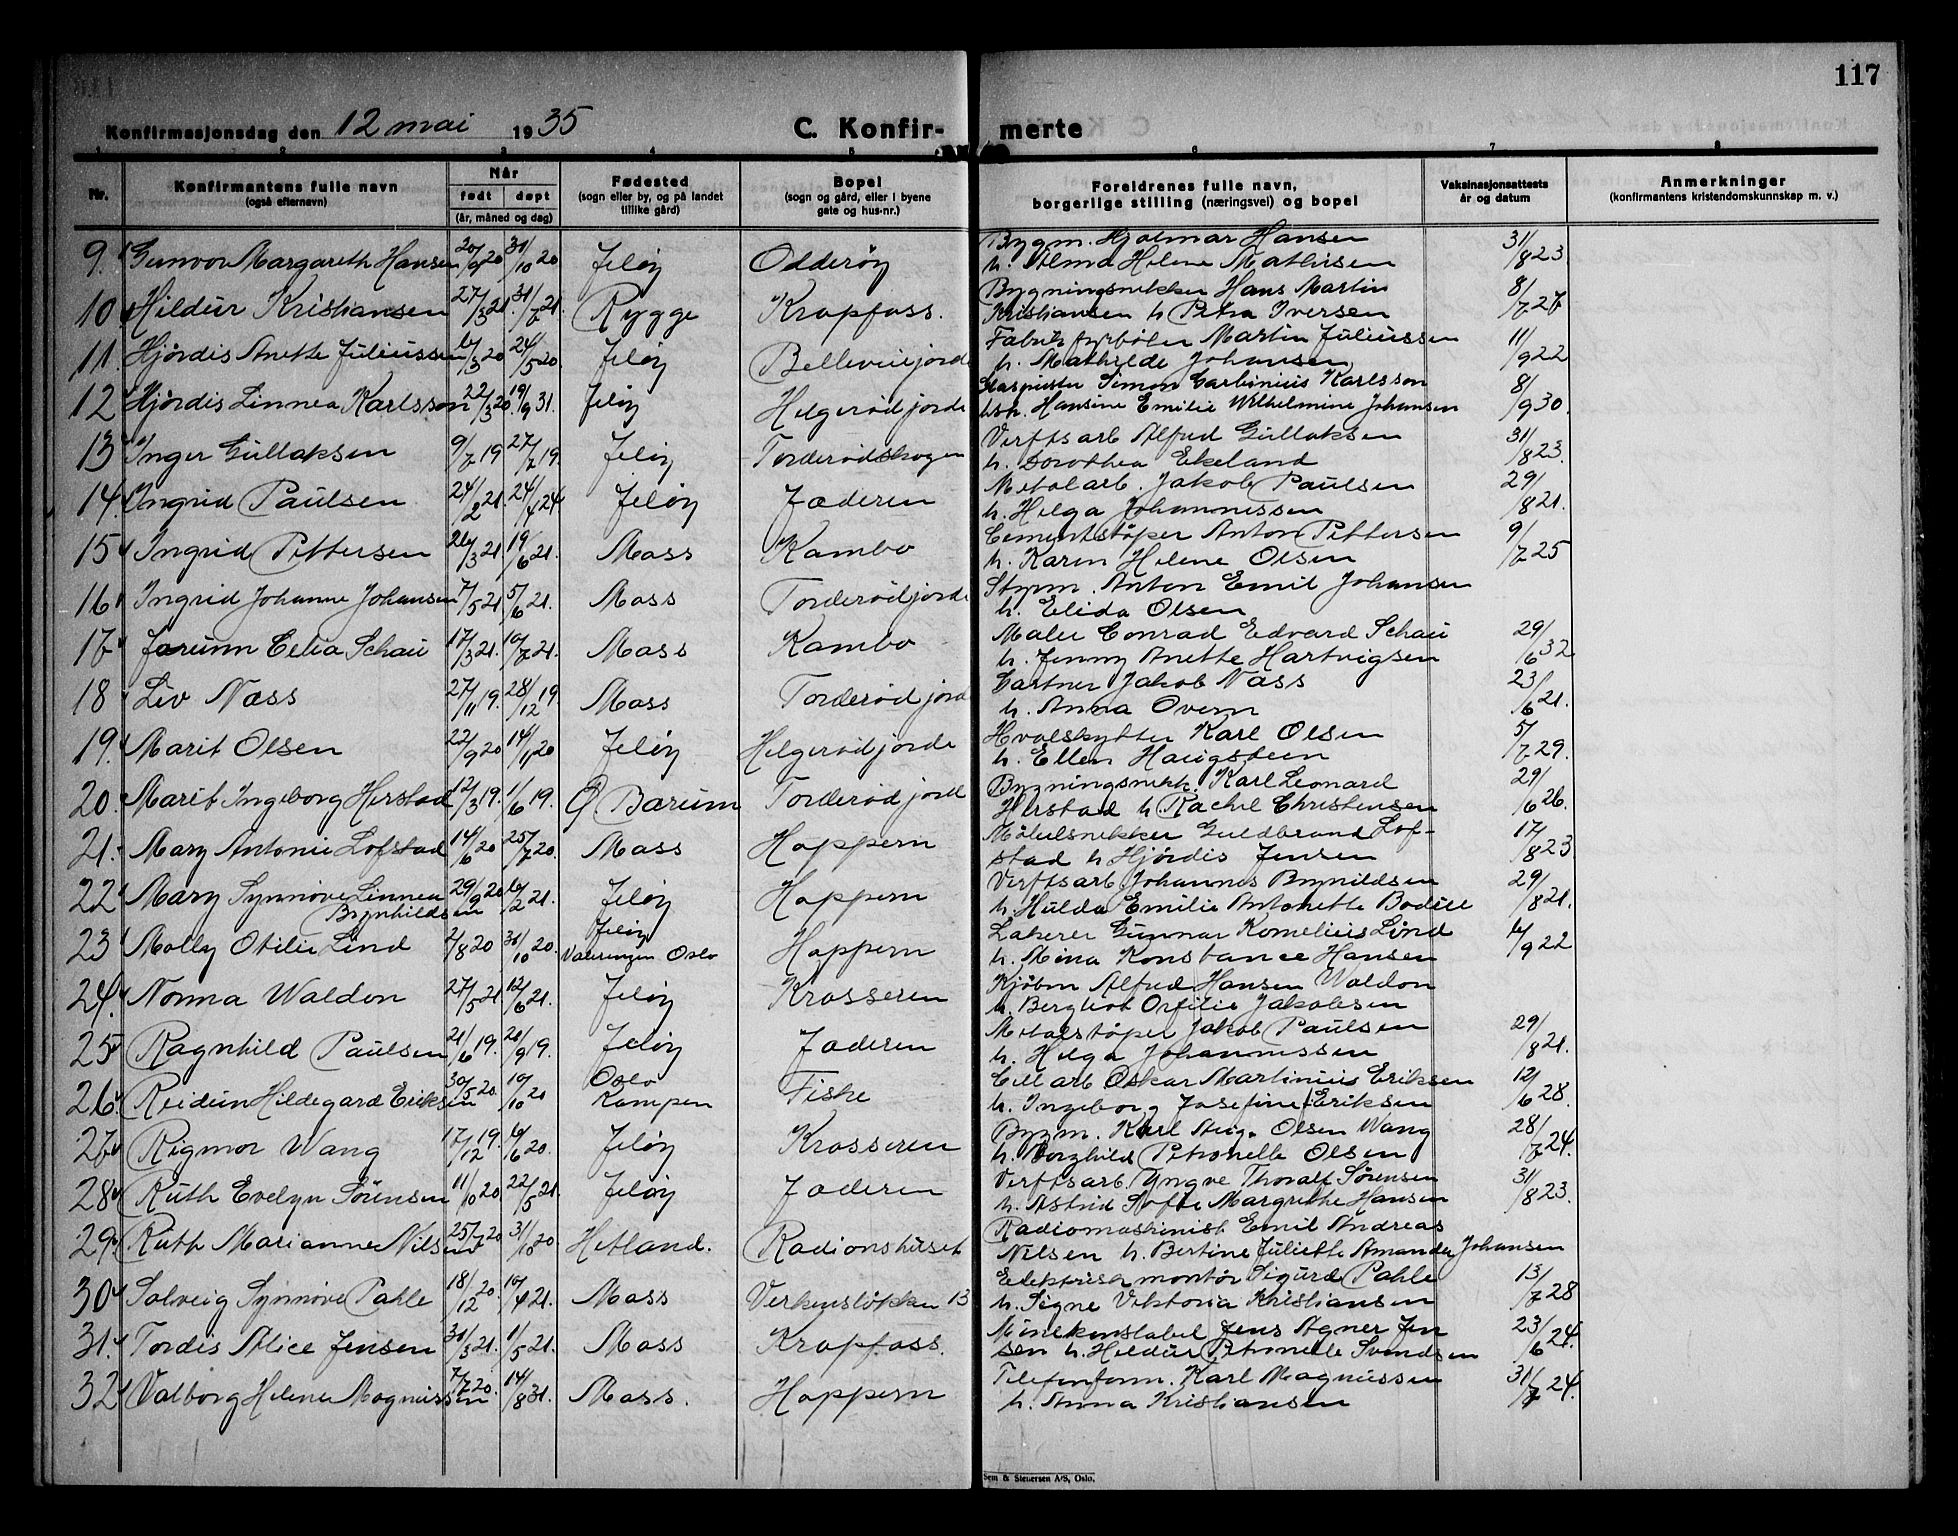 117
Konfirmasjonsdag den 12 mai 1935 C. Konfir- merte
1 2 3 4 5 6 7 8
Nr. Konfirmantens fulle navn (også efternavn) Når født døpt (år, måned og dag) Fødested (sogn eller by, og på landet tillike gård) Bopel (sogn og gård, eller i byene gate og hus-nr.) Foreldrenes fulle navn, borgerlige stilling (næringsvei) og bopel Vaksinasjonsattests år og datum Anmerkninger (konfirmantens kristendomskunnskap m. v.)
9. Gunvor Margareth Hansen 20/9 20 31/10 20 Jeløy Odderøy Bygm. Hjalmar Hansen 31/8 23
h. Alma Helene Mathisen
10 Hildur Kristiansen 27/3 21. 31/7 21. Rygge Krapfoss. Bygningsnekker Hans Martin 8/7 27
Kristiansen h Petra Iversen
11. Hjördis Anette Juliussen 6/3 20 24/5 20. Jeløy Bellevuejorde Fabrikfyrböter Martin Juliussen 11/9 22
h. Mathilde Johansen
12 Hjördis Linnea Karlsson 22/3 20. 19/9 31. Jeløy Helgerödjorde Simon Karlsson 8/9 30.
Hansine Emilie Wilhelmine Johansen
13 Inger Gullaksen 9/7 19 27/7 19. Jeløy Torderödskogen Verftsarb Alfred Gullaksen 31/8 23.
h. Dorothea Ekeland
14. Ingrid Paulsen 24/2 21. 24/4 24 Jeløy Jæderen Metalarb. Jakob Paulsen 29/8 21.
h. Helga Johannissen
15 Ingrid Pettersen 26/3 21 19/6 21. Moss Kambo Cementstöper Anton Pettersen 9/7 25
h. Karen Helene Olsen
16 Ingrid Johanne Johansen 7/5 21 5/6 21. Moss Torderödjorde Styrm. Anton Emil Johansen
h. Elida Olsen
17 Jorunn Celia Schau 17/3 21. 10/7 21. Moss Kambo Maler Conrad Edvard Schau 29/6 32
h. Jenny Anette Hartvigsen
18 Liv Næss 27/11 19. 28/12 19. Moss Torderöd jord Gartner Jakob Næss 23/6 21.
h. Anna Overn
19. Marit Olsen 22/9 20 14/11 20 Jeløy Helgerödjorde Hvalskytter Karl Olsen 5/7 29.
h. Ellen Haugsteen
20. Marit Ingeborg Herstad 12/3 19. 1/6 19. Ø Bærum Torderöd jord Bygningsnekk. Karl Leonard 29/6 26.
Herstad h Rachel Christensen
21. Mary Antonie Lofstad 14/6 20 25/7 20. Moss Hoppern Möbelsnekker Guldbrand Lof- 17/8 23
stad h Hjördis Jensen
22 Mary Synnöve Linnea 29/9 20 6/2 21. Jeløy Hoppern Verftsarb Johannes Brynildsen 29/8 21.
Brynhildsen h. Hulda Emilie Antonette Bodill
23 Molly Otilie Lind 2/8 20 31/10 20. Jeløy Hoppern Lakerer Gunnar Kornelius Lind 6/9 22
Valeringen Oslo h. Mina Konstance Hansen
24. Norma Waldon 27/5 21 12/6 21. Jeløy Krosseren Kjöbm Alfred Hansen Waldon
h. Bergliot Otilie Jakobsen
25 Ragnhild Paulsen 21/6 19. 20/9 19. Jeløy Jæderen Metalstöper Jakob Paulsen 29/8 21.
h. Helga Johannissen
26. Reidun Hildegard Eriksen 30/5 20. 10/10 20 Oslo Fiske Cell arb Oskar Martinius Eriksen 12/6 28.
Kampen h. Ingeborg Josefine Eriksen
27 Rigmor Wang 17/12 19. 6/6 20. Jeløy Krosseren Bygm. Karl Aug. Olsen Wang 28/7 24.
h. Borghild Petronelle Olsen
28 Ruth Evelyn Sörensen 11/10 20 22/5 21. Jeløy Jæderen Verftsarb. Yngve Thoralf Sörensen 31/8 23.
h. Astrid Sofie Margrethe Hansen
29 Ruth Marianne Nilsen 25/7 20 31/10 20. Hetland. Radionshuset Radiomaskinist Emil Andreas
Nilsen h. Bertine Juliette Amanda Johansen
30 Solveig Synnöve Pahle 18/12 20 10/4 21. Moss Verkenslökken 13 Elektrisk montör Sigurd Pahle 13/7 28
h. Signe Viktoria Kristiansen
31. Tordis Alice Jensen 31/3 21. 1/5 21. Moss Krapfoss. Minekonstabel Jens Agner Jen 23/6 24.
sen h. Hildur Petronelle Svendsen
32 Valborg Helene Magnussen 7/7 20. 14/8 31. Moss. Hoppern Telefonform. Karl Magnussen 31/7 24.
h. Anna Kristiansen
Sem & Stenersen A/S, Oslo.